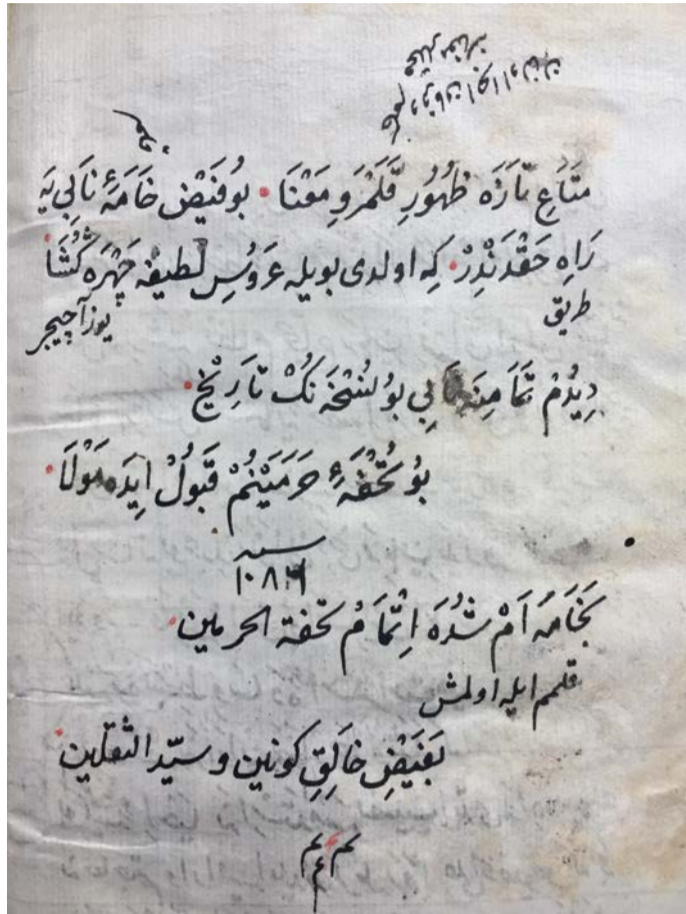 قلم
متاع تازه ظهور قلمرو معنا بو فیض خامۀ نابی یه
راه حقدندر که اولدی بویله عروس لطیفه چهره گشا
طریق
یوز آچیجر
دیدم تمامنه نابی بو نسخه نك تاریخ
بو تحفۀ حرمینم قبول ایده مولا
سنه
بخامه ام شده اتمام تحفة الحرمین
قلمم ایله اولمش
بفیض خالق کونین و سید الثقلین